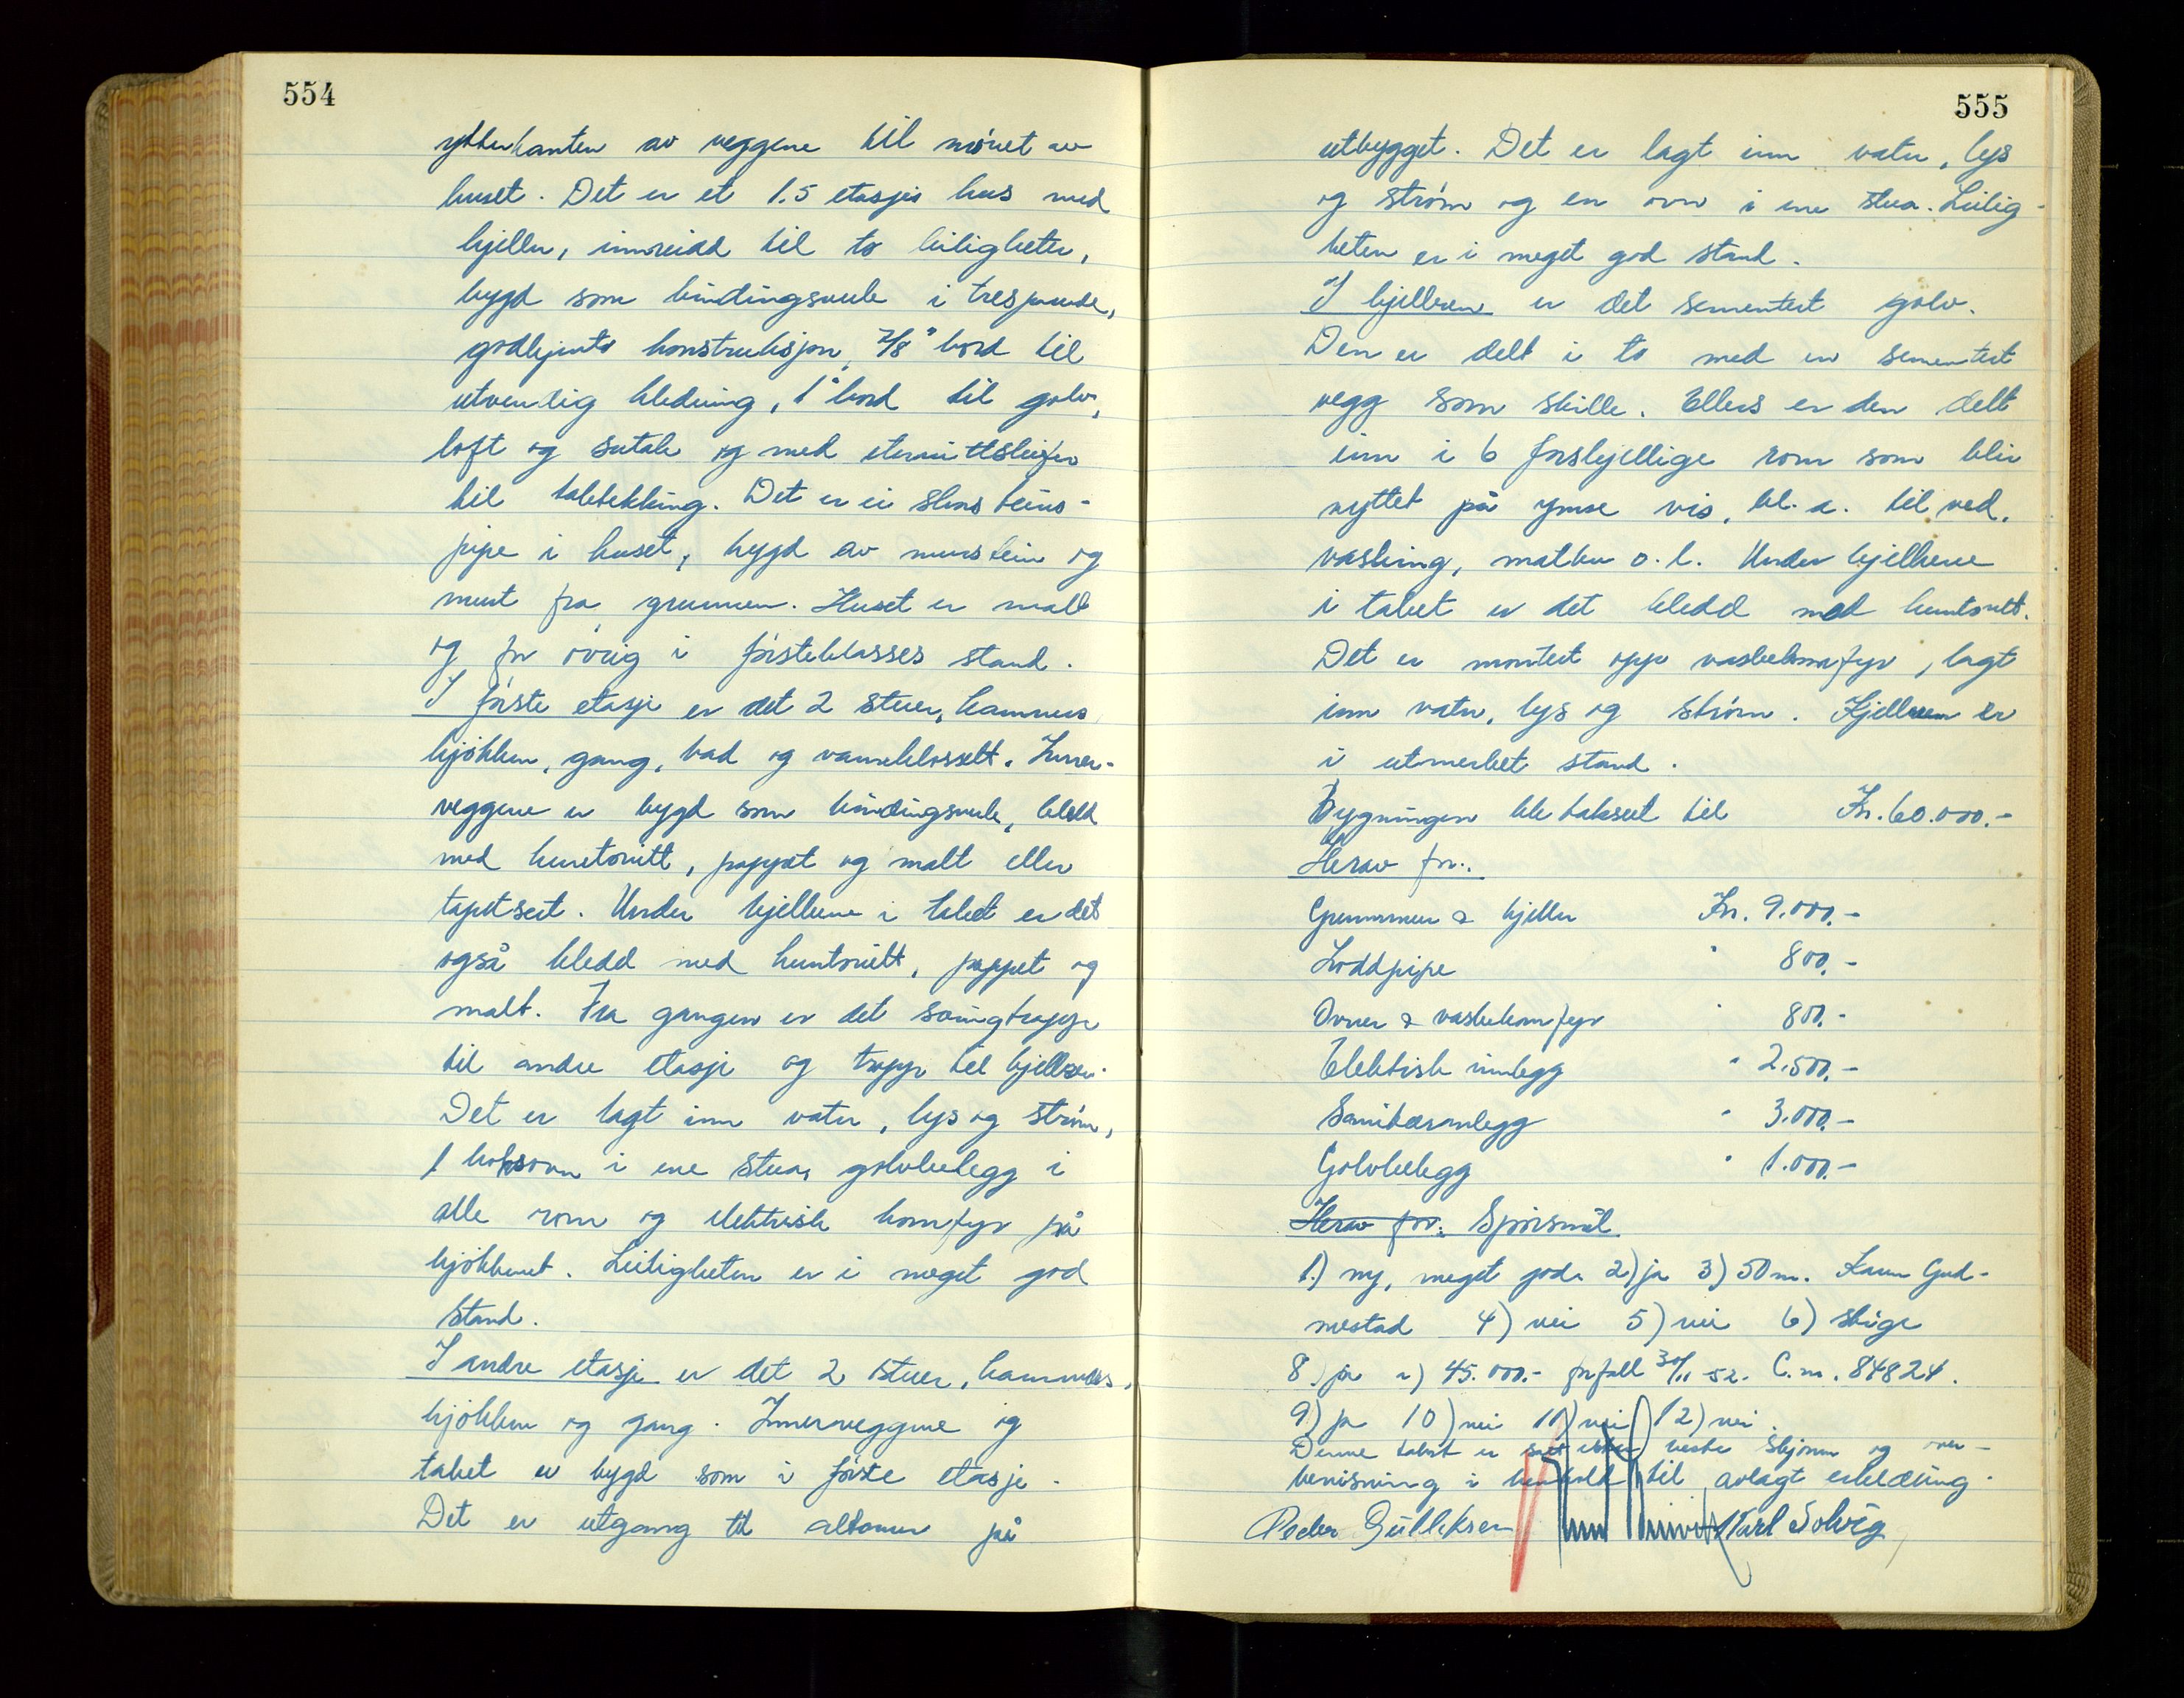 554
ytterkanten av veggene til mønet av
huset. Det er et 1.5 etasjes hus med
kjeller, innreidd til to leiligheter,
bygd som bindingsverk i trespunde,
godkjente konstruksjon, 7/8" bord til
utvendig kledning, 1" bord til golv,
loft og sutak og med eternittskifer
til taktekking. Det er ei skorsteins-
pipe i huset, bygd av murstein og
murt fra grunnen. Huset er malt
og for øvrig i førsteklasses stand.
I første etasje er det 2 stuer, kammers
kjøkken, gang, bad og vannklosett. Inner-
veggene er bygd som bindingsverk, kledd
med huntonitt, pappet og malt eller
tapetsert. Under bjelkene i taket er det
også kledd med huntonitt, pappet og
malt. Fra gangen er det svingtrapp
til andre etasje og trapp til kjelleren.
Det er lagt inn vatn, lys og strøm,
1 koksovn i ene stua, golvbelegg i
alle rom og elektrisk komfyr på
kjøkkenet. Leiligheten er i meget god
stand.
I andre etasje er det 2 stuer, kammers,
kjøkken og gang. Innerveggene og
taket er bygd som i første etasje.
Det er utgang til altanen på
555
utbygget. Det er lagt inn vatn, lys
og strøm og en ovn i ene stua. Leilig-
heten er i meget god stand.
I kjelleren er det sementert golv.
Den er delt i to med en sementert
vegg som skille. Ellers er den delt
inn i 6 forskjellige rom som blir
nyttet på ymse vis, bl. a. til ved,
vasking, matbu o. l. Under bjelkene
i taket er det kledd med huntonitt.
Det er montert opp vaskekomfyr, lagt
inn vatn, lys og strøm. Kjelleren er
i utmerket stand.
Bygningen ble taksert til Kr. 60.000.-
Herav for:
Grunnmur & kjeller Kr. 9.000.-
Loddpipe " 800.-
Ovner & vaskekomfyr " 800.-
Elektrisk innlegg " 2.500.-
Sanitæranlegg " 3.000.-
Golvbelegg " 1.000.-
Herav for: Spørsmål
1.) ny, meget god. 2) ja 3) 50 m. Karen Gud-
mestad 4) nei 5) nei 6) stige
8) ja a) 45.000.- forfall 30/11-52. C.nr. 84824.
9) ja 10) nei 11) nei 12) nei.
Denne takst er satt etter beste skjønn og over-
bevisning i henhold til avlagt erklæring.
Peder Gulliksen Karl Solvig